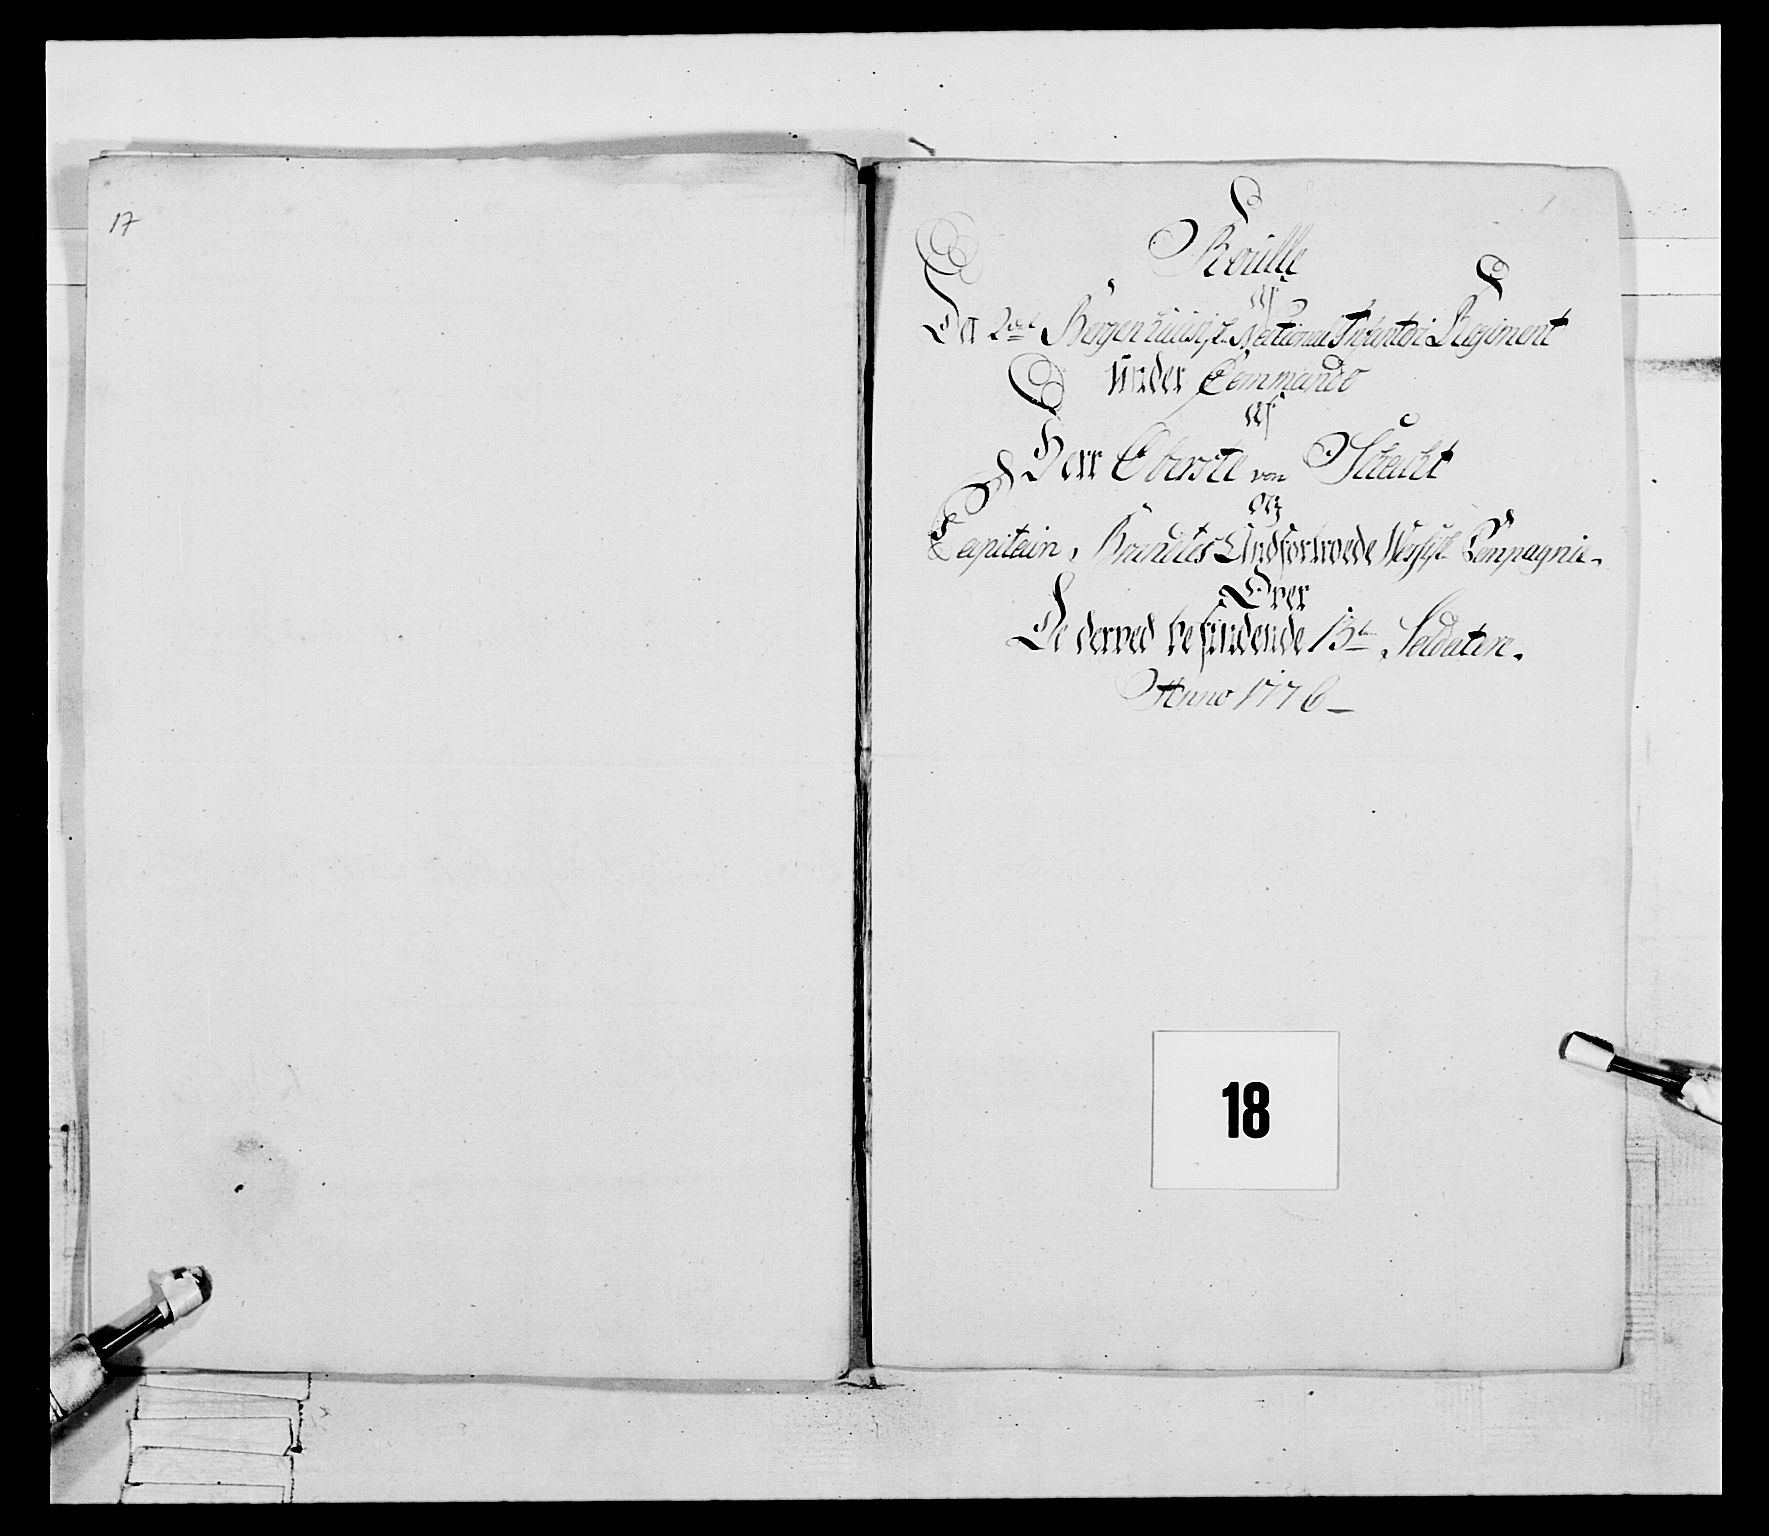 17
Roulle
Af
Det 2det Bergenhuusiske National Infanteri Regiment
Under Commando
Af
Herr Oberste von
Og
Capitain, Brandtes Andfortroede Compagnie.
Over
De derved befindende Soldatere.
Anno 1776 –
18